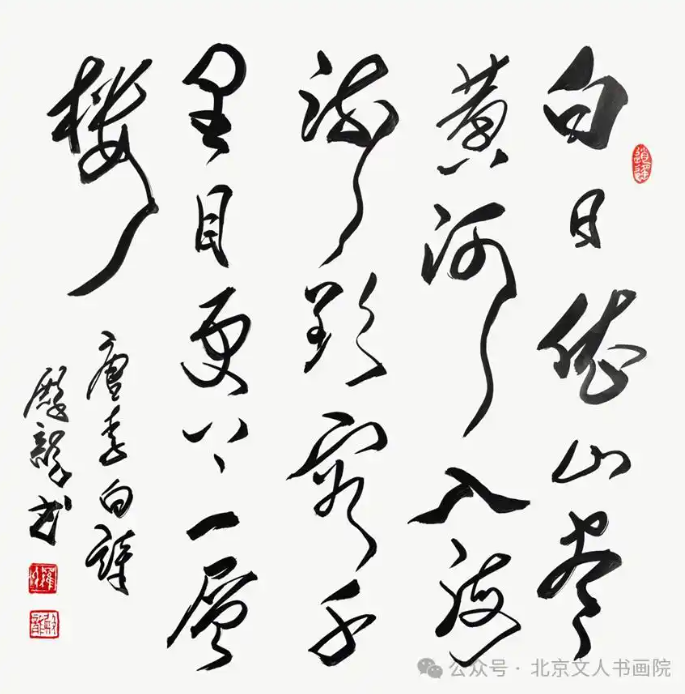 白日依山盡
黃河入海
流欲窮千
里目更上一層
樓
唐李白詩
公众号 · 北京文人书画院